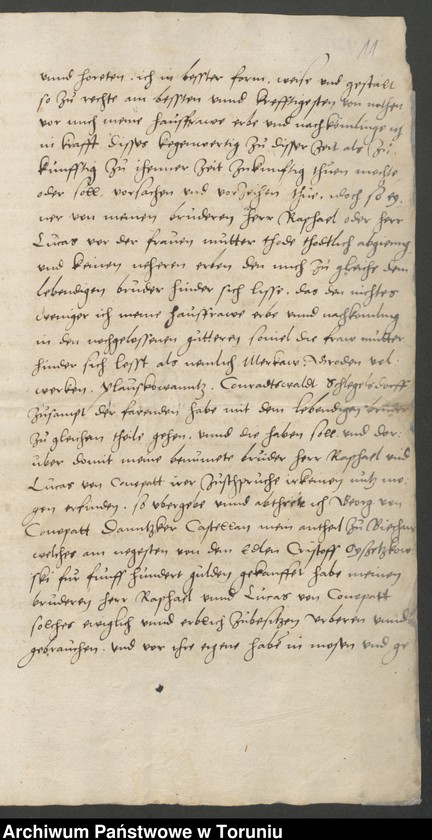 11
vnnd horeten. ich in bester form. weise vnd gestalt
so zu rechte am bessten vnnd krefftigesten von nothen
vor mich meine hausfrawe erbe vnd nachkömlinge
in krafft disses kegenwertig zu disser zeit als zu
kunfftig zu ihenner zeit zukunftig thuen mochte
oder soll. vorsachen vnd vorzeihen thue. doch so ey
ner von meinen bruderen herr Raphael oder herr
Lucas vor der frauen mutter thode thodtlich abgieng
vnd keinen neheren erben den mich zu gleiche dem
lebendigen bruder hinder sich lisse. das den nichtes
weniger ich meine hausfrawe erbe vnnd nachkomling
in den nochgelossenen gutteren souiel die fraw mutter
hinder sich lesst als nemlich
werken. Conradtswaldt Schlegelsdorff
zusampt der farenden habe mit dem lebendigen bruder
zu gleichen theile gehen. vnnd die haben soll vnd dor:
uber domit meine benumete bruder herr Raphael vnd
Lucas von Conopatt irer zusspruche irkenen nutz mo:
gen erfinden. so vbergebe vnnd abthrete ich Georg von
Conopatt Danntzker Castellan mein antheil zu
welches am negesten von dem Edlen Cristoff
ski fur funff hundert gulden gekauffet habe meinen
bruderen herr Raphael vnnd Lucas von Conopatt
solches ewiglich vnnd erblich zubesitzen vnnd
gebrauchen. vnd vor ihre eigene habe in vnd ge
Archiwum Państwowe w Toruniu